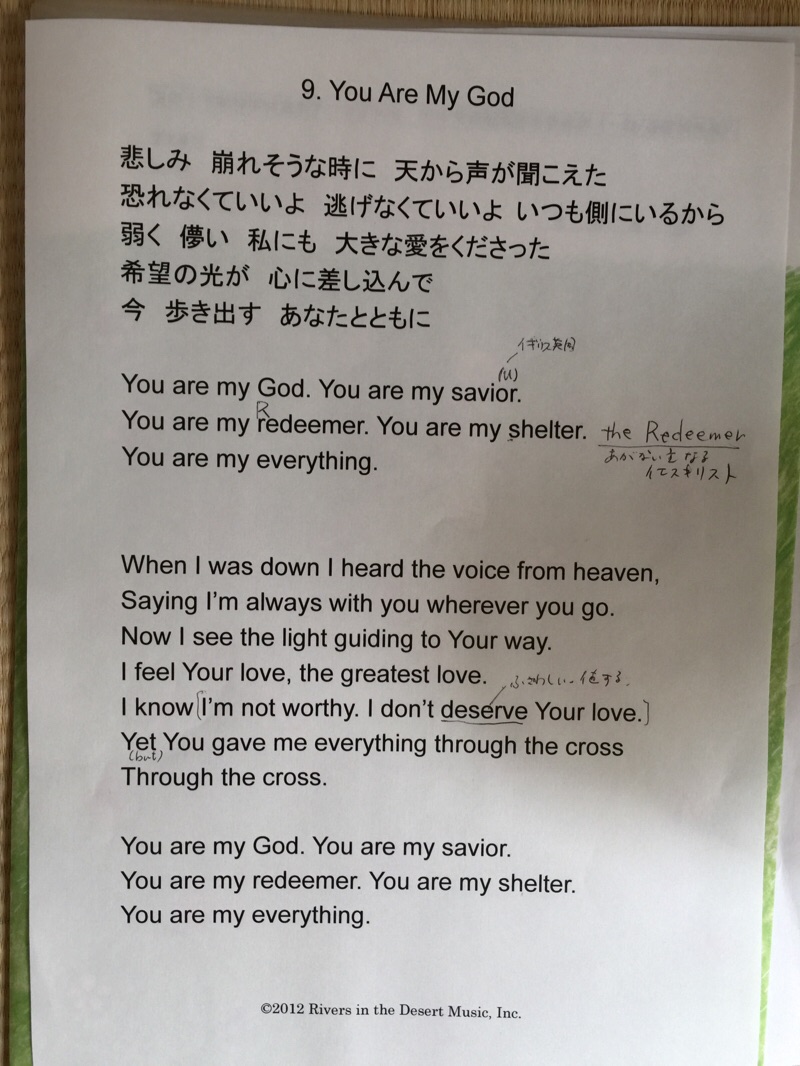 9. You Are My God
悲しみ 崩れそうな時に 天から声が聞こえた
恐れなくていいよ 逃げなくていいよ いつも側にいるから
弱く 儚い 私にも 大きな愛をくださった
希望の光が 心に差し込んで
今 歩き出す あなたとともに
イギリス英国
(u)
You are my God. You are my savior.
R
You are my redeemer. You are my shelter. the Redeemer
You are my everything. あがない主なる
イエスキリスト
When I was down I heard the voice from heaven,
Saying I'm always with you wherever you go.
Now I see the light guiding to Your way.
I feel Your love, the greatest love. ふさわしい。値する。
I know [I'm not worthy. I don't deserve Your love.]
Yet You gave me everything through the cross
(but)
Through the cross.
You are my God. You are my savior.
You are my redeemer. You are my shelter.
You are my everything.
©2012 Rivers in the Desert Music, Inc.